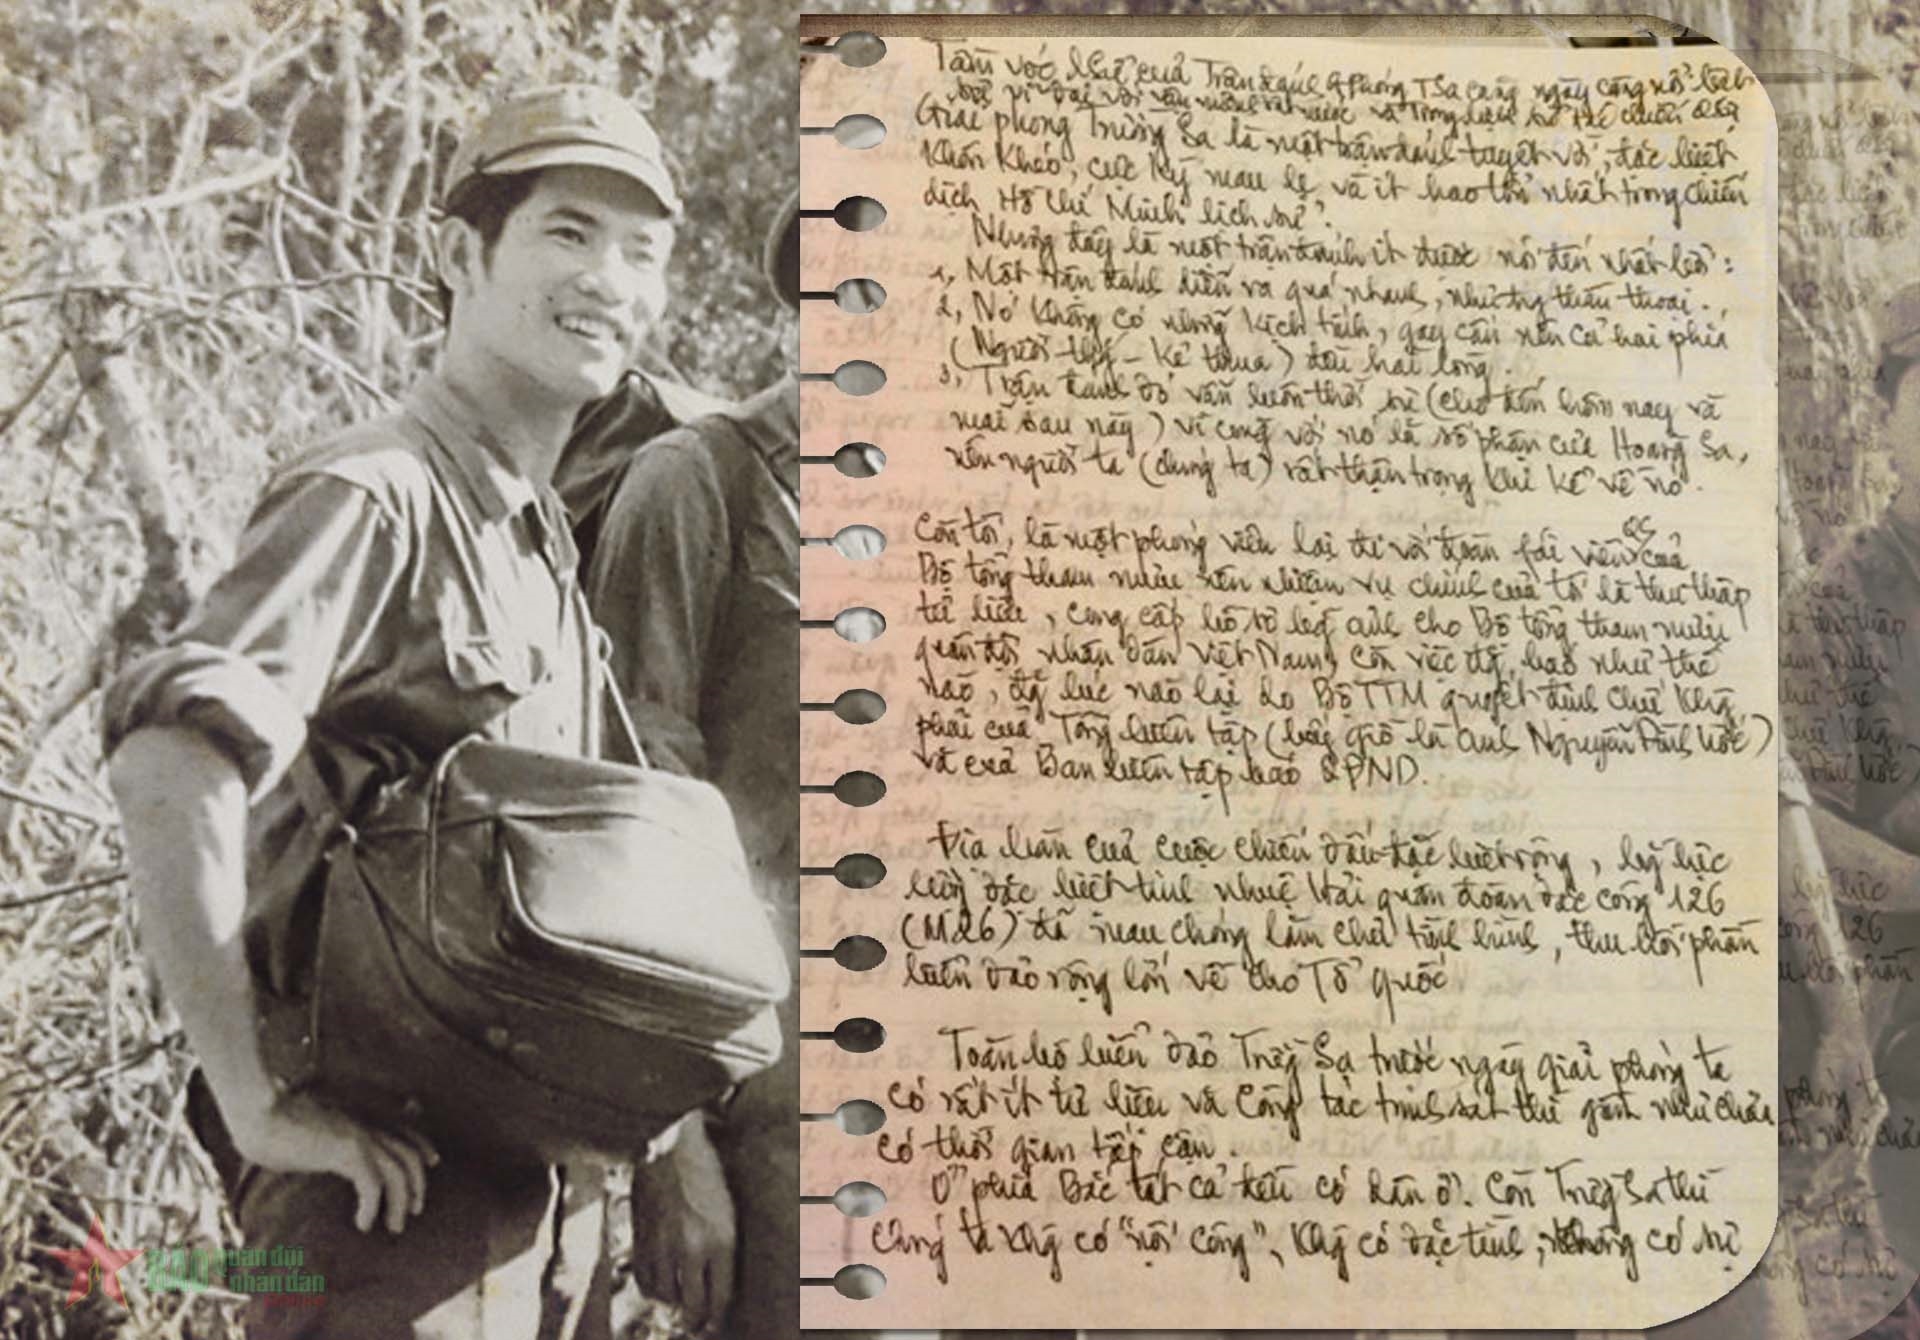 Tầm vóc lsử của Trận đánh GPhóng TSa càng ngày càng nổi bật
bởi vĩ đại với vận mệnh đất nước và trong lịch sử
Giải phóng Trường Sa là một trận đánh tuyệt vời, đặc biệt
khôn khéo, cực kỳ mau lẹ và ít hao tổn nhất trong chiến
dịch Hồ Chí Minh lịch sử.
Nhưng đây là một trận đánh ít được nói đến nhất bởi:
1, Một trận đánh diễn ra quá nhanh, như thần thoại.
2, Nó không có những kịch tính, gay cấn nên cả hai phía
(Người thg - kẻ thua) đều hài lòng.
3, Trận đánh đó vẫn luôn thời sự (cho đến hôm nay và
mai sau này) vì cùng với nó là số phận của Hoàng Sa,
nên người ta (chúng ta) rất thận trọng khi kể về nó.
Còn tôi, là một phóng viên lại đi với đoàn fái viên QS của
Bộ tổng tham mưu nên nhiệm vụ chính của tôi là thu thập
tư liệu, cung cấp hồ sơ bằg ảnh cho Bộ tổng tham mưu
quân đội nhân dân Việt Nam, còn việc đg báo như thế
nào, đg lúc nào lại do Bộ TTM quyết định chứ khg
phải của Tổng biên tập (bấy giờ là anh Nguyễn Đình Ước)
và của Ban biên tập báo QĐND.
Địa bàn của cuộc chiến đấu đặc biệt rộng, bằg lực
lượg đặc biệt tinh nhuệ Hải quân đoàn đặc công 126
(M26) đã mau chóng làm chủ tình hình, thu hồi phần
biển đảo rộng lớn về cho Tổ quốc
Toàn bộ biển đảo Trườg Sa trước ngày giải phóng ta
có rất ít tư liệu và công tác trinh sát thì gần như chưa
có thời gian tiếp cận.
Ở phía Bắc tất cả đều có dân ở. Còn Trườg Sa thì
chúng ta khg có "nội công", khg có đặc tình, không có sự
BÁO quân đội
nhân dân